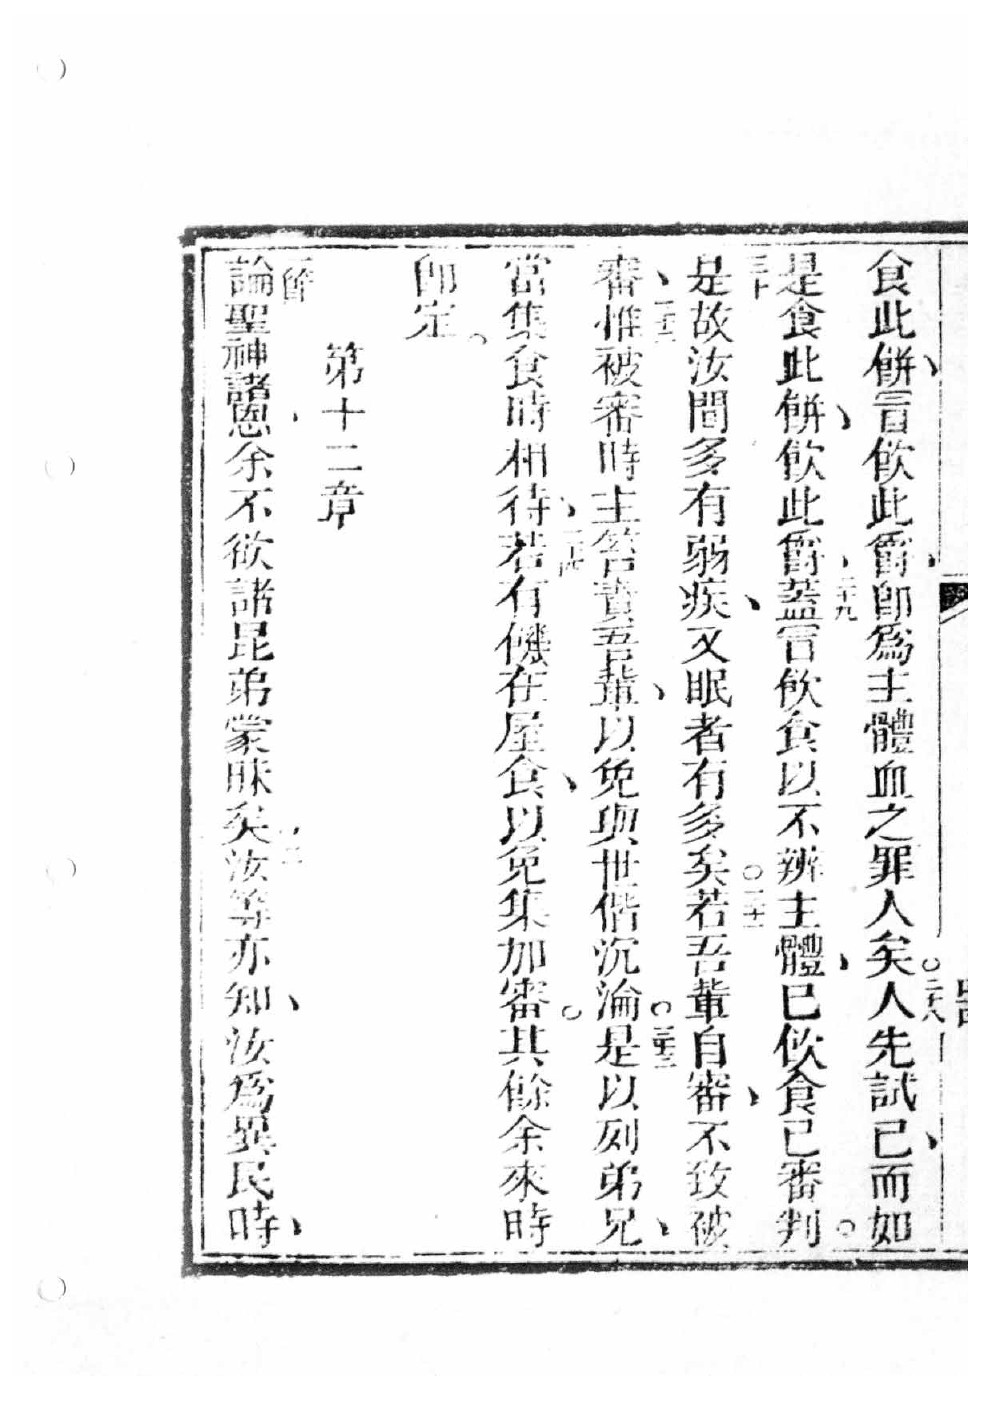 食此餅言飲此爵即為主體血之罪人矣。二十八人先試己而如
是食此餅飲此爵二十九蓋言飲食以不辨主體已飲食己審判。
三十是故汝間多有弱疾又眠者有多矣。三十一若吾輩自審不致被
審三十二惟被審時主笞責吾輩以免與世偕沉淪。三十三是以列弟兄
當集食時相待三十四若有饑在屋食以免集加審。其餘余來時
即定。
第十二章
一節論聖神諸恩余不欲諸昆弟蒙昧矣二汝等亦知汝為異民時